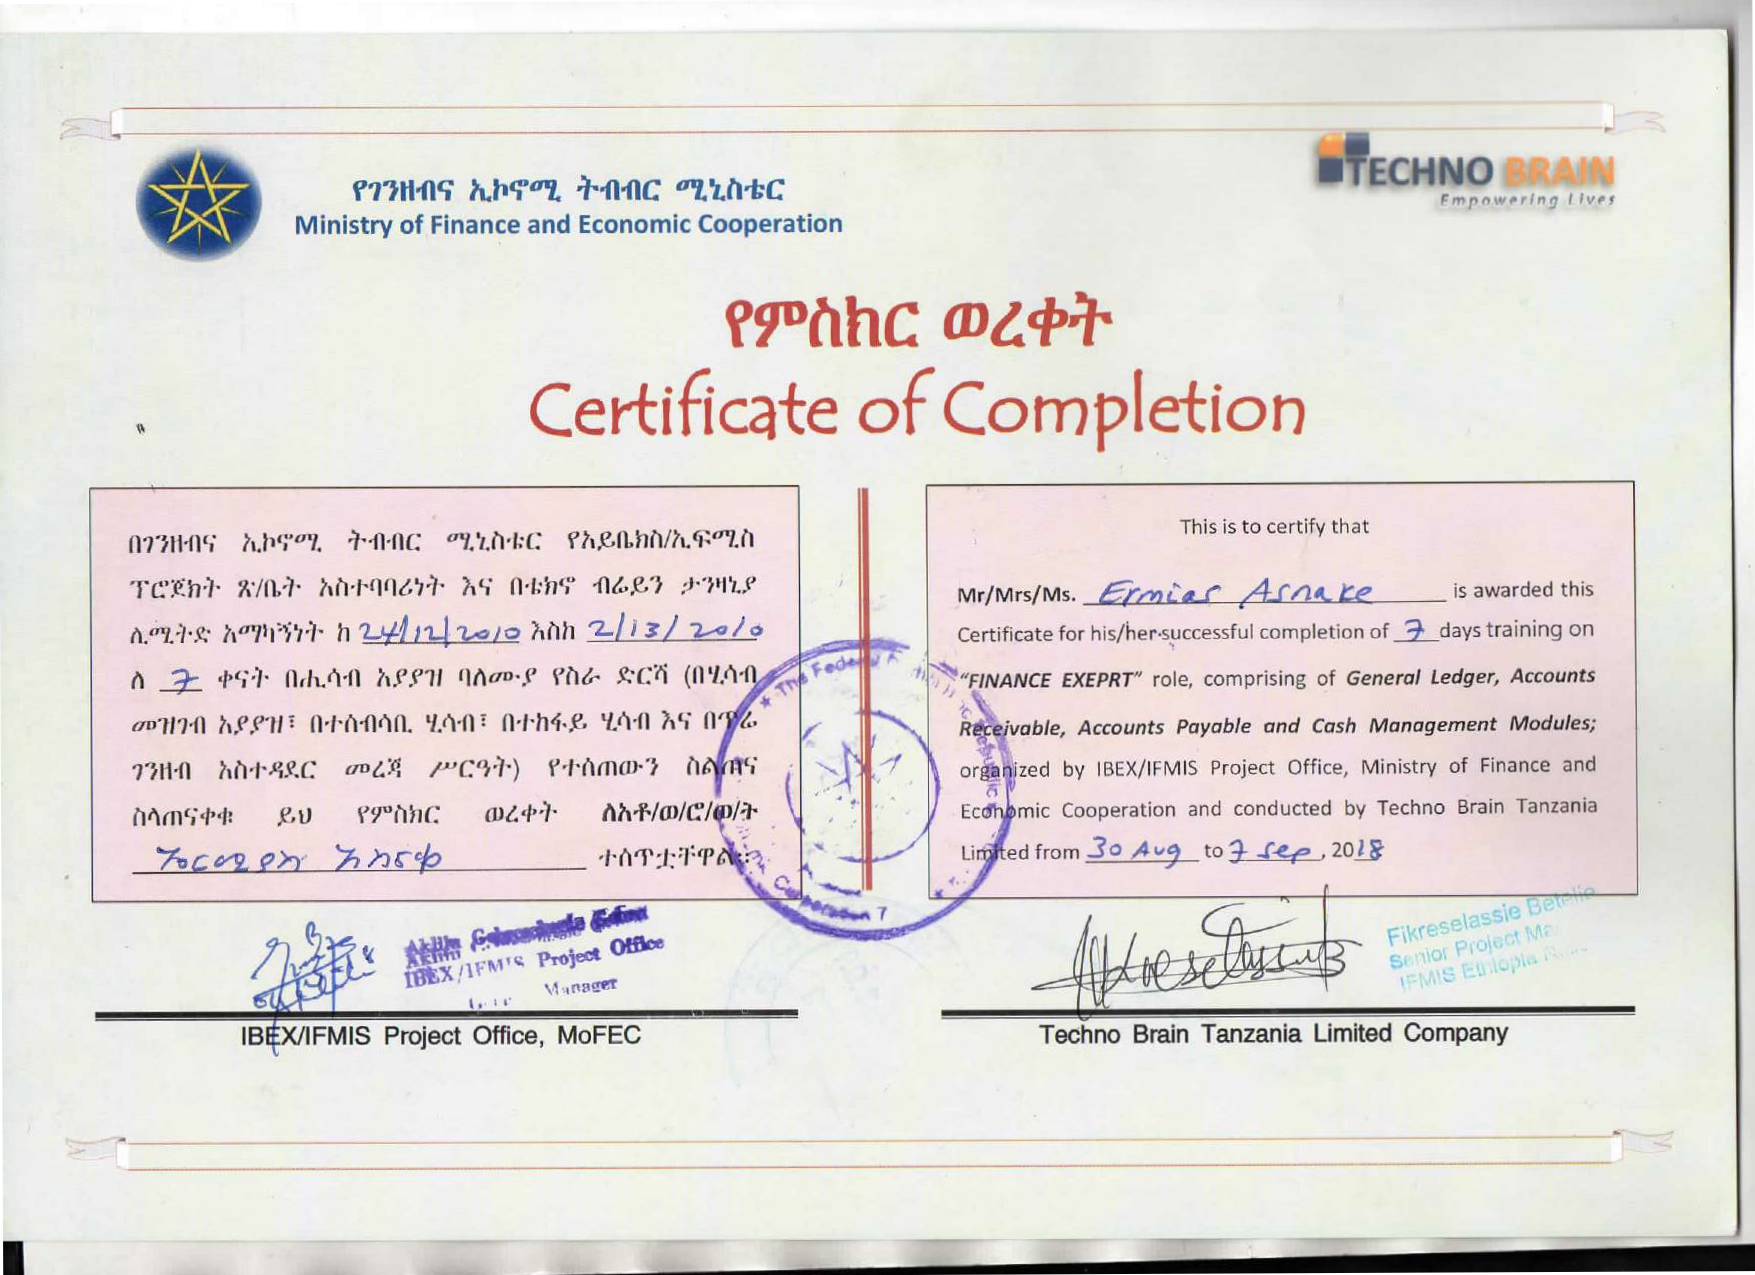 የገንዘብና ኢኮኖሚ ትብብር ሚኒስቴር
Ministry of Finance and Economic Cooperation
TECHNO BRAIN
Empowering Lives
የምስክር ወረቀት
Certificate of Completion
በገንዘብና ኢኮኖሚ ትብብር ሚኒስቴር የአይቤክስ/ኢፍሚስ
ፕሮጀክት ጽ/ቤት አስተባባሪነት እና በቴክኖ ብሬይን ታንዛኒያ
ሊሚትድ አማካኝነት ከ 24/12/2010 እስከ 2/13/2010
ለ 7 ቀናት በሒሳብ አያያዝ ባለሙያ የስራ ድርሻ (በሂሳብ
መዝገብ አያያዝ፣ በተሰብሳቢ ሂሳብ፣ በተከፋይ ሂሳብ እና በጥሬ
ገንዘብ አስተዳደር መረጃ ሥርዓት) የተሰጠውን ስልጠና
ስላጠናቀቁ ይህ የምስክር ወረቀት ለአቶ/ወ/ሮ/ወ/ት
ኤርሚያስ አስናቀ ተሰጥቷቸዋል፡፡
This is to certify that
Mr/Mrs/Ms. Ermias Asnake is awarded this
Certificate for his/her successful completion of 7 days training on
"FINANCE EXEPRT" role, comprising of General Ledger, Accounts
Receivable, Accounts Payable and Cash Management Modules;
organized by IBEX/IFMIS Project Office, Ministry of Finance and
Economic Cooperation and conducted by Techno Brain Tanzania
Limited from 30 Aug to 7 Sep, 2018
The Federal Republic
Cooperation
Aklilu
IBEX/IFMIS Project Office
Manager
IBEX/IFMIS Project Office, MoFEC
Fikreselassie
Senior Project
IFMIS Ethiopia
Techno Brain Tanzania Limited Company